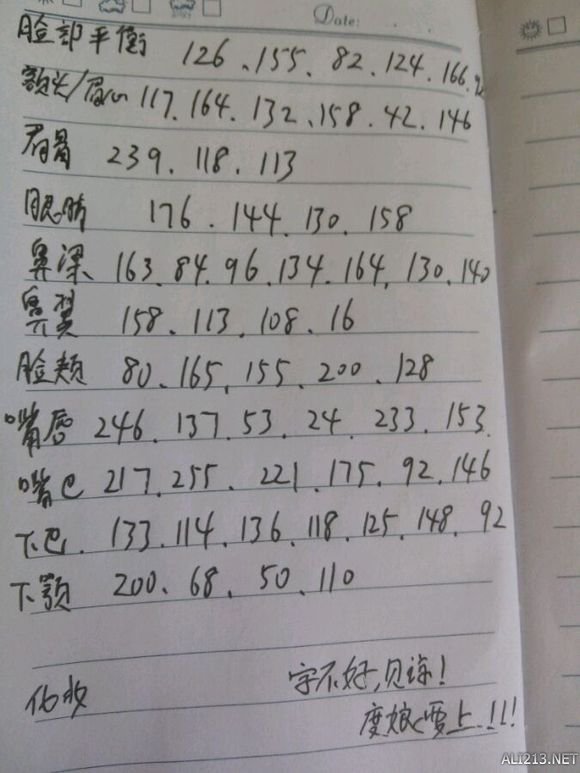 Date:
脸部平衡 126、155、82、124、166、92
额头/眉心 117、164、132、158、42、146
眉骨 239、118、113
眼睛 176、144、130、158
鼻梁 163、84、96、134、164、130、140
鼻翼 158、113、108、16
脸颊 80、165、155、200、128
嘴唇 246、137、53、24、233、153
嘴巴 217、255、221、175、92、146
下巴 133、114、136、118、125、148、92
下颚 200、68、50、110
字不好,见谅!
化妆
度娘要上!!!
ALI213.NET